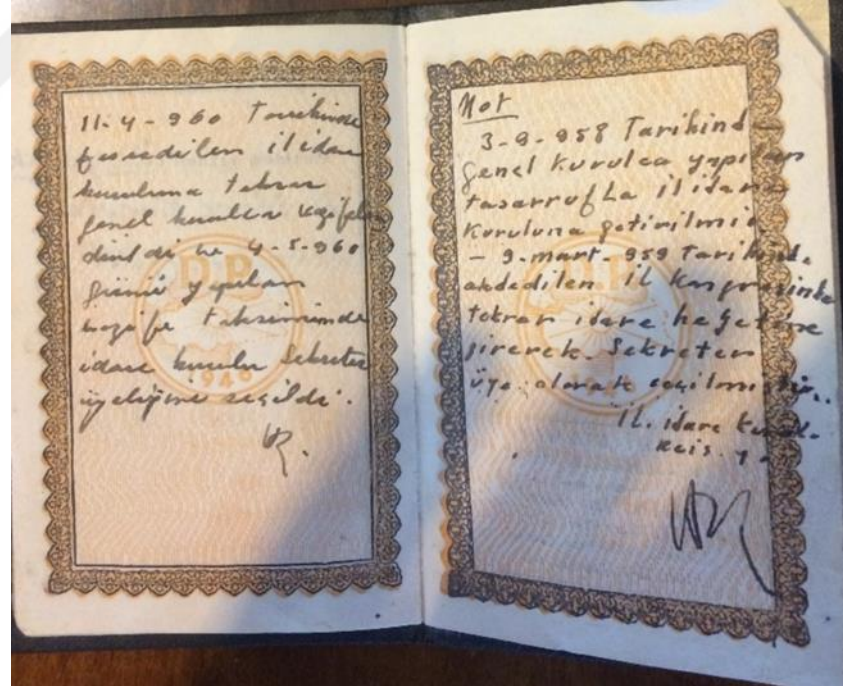 11-4-960 Tarihinde
fesedilen il idare
kuruluna tekrar
genel kurulca vazifelen
dirildi ve 4-5-960
günü yapılan
vazife taksiminde
idare kurulu Sekreter
üyeliğine seçildi.
D P
1946
Not
3-9-958 Tarihind
Genel Kurulca yapılan
tasarrufla il idare
Kuruluna getirilmiş.
- 9-mart-959 Tarihinde
akdedilen il Kongresinde
tekrar idare heyetine
girerek Sekreter
üye olarak seçilmiştir.
D P
İl idare Kurulu
Reis